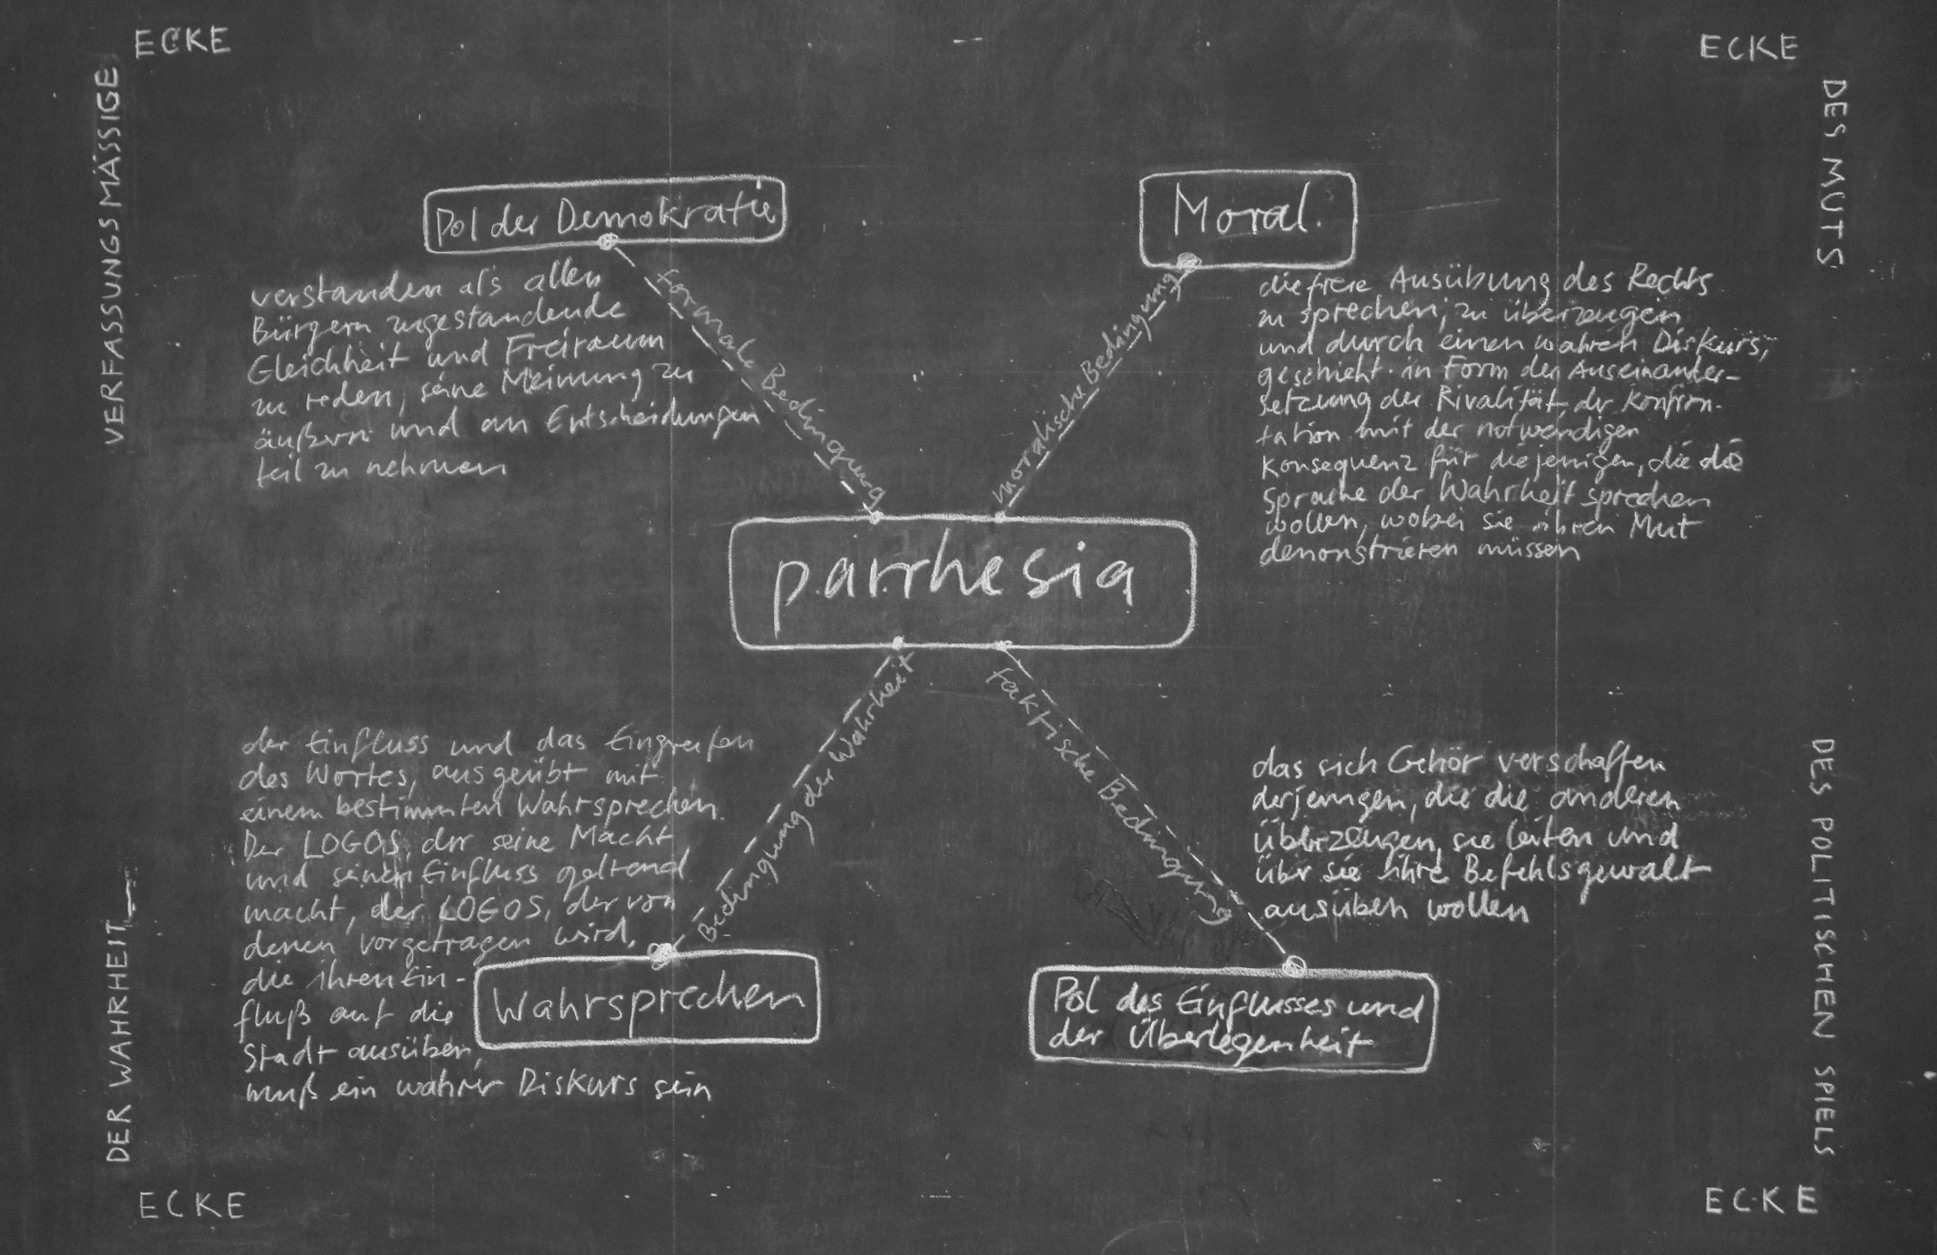 ECKE
VERFASSUNGSMÄSSIGE
Pol der Demokratie
verstanden als allen
Bürgern zugestandende
Gleichheit und Freiraum
zu reden, seine Meinung zu
äußern und an Entscheidungen
teil zu nehmen
formale Bedingung
ECKE
DES MUTS
Moral.
die freie Ausübung des Rechts
zu sprechen, zu überzeugen
und durch einen wahren Diskurs,
geschieht in Form der Auseinander-
setzung der Rivalität, der Konfron-
tation mit der notwendigen
Konsequenz für diejenigen, die die
Sprache der Wahrheit sprechen
wollen, wobei sie ihren Mut
demonstrieren müssen
moralische Bedingung
parrhesia
Bedingung der Wahrheit
faktische Bedingung
der Einfluss und das Eingreifen
des Wortes, ausgeübt mit
einem bestimmten Wahrsprechen.
Der LOGOS, der seine Macht
und seinen Einfluss geltend
macht, der LOGOS, der von
denen vorgetragen wird,
die ihren Ein-
fluß auf die
Stadt ausüben,
muß ein wahrer Diskurs sein
Wahrsprechen
DER WAHRHEIT
ECKE
das sich Gehör verschaffen
derjenigen, die die anderen
überzeugen, sie leiten und
über sie ihre Befehlsgewalt
ausüben wollen
Pol des Einflusses und
der Überlegenheit
DES POLITISCHEN SPIELS
ECKE